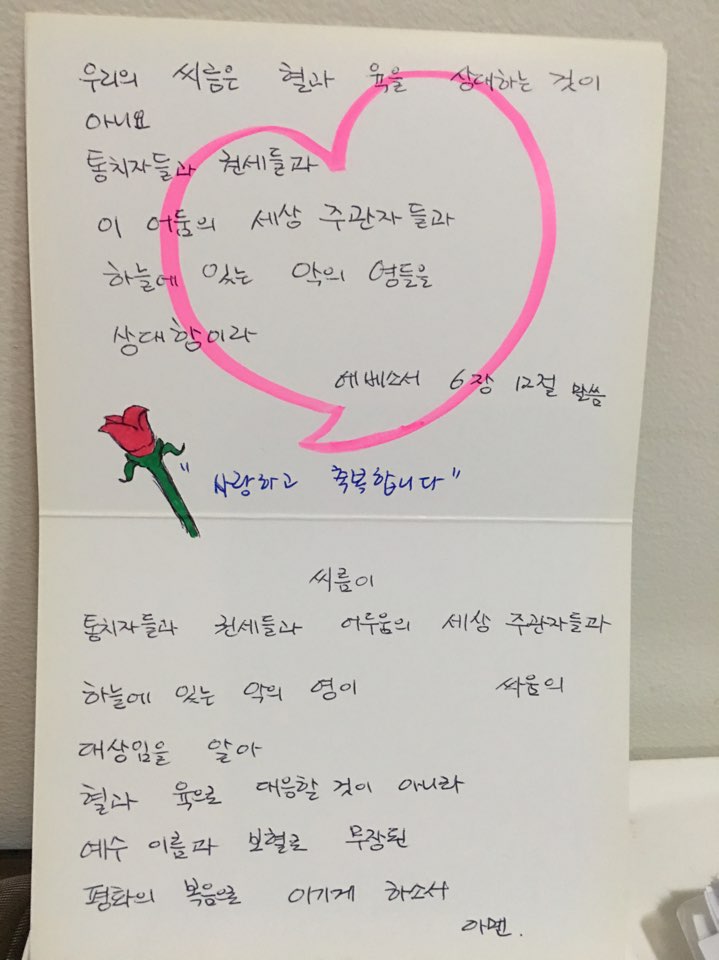 우리의 씨름은 혈과 육을 상대하는 것이
아니요
통치자들과 권세들과
이 어둠의 세상 주관자들과
하늘에 있는 악의 영들을
상대함이라
에베소서 6장 12절 말씀
"사랑하고 축복합니다"
씨름이
통치자들과 권세들과 어두움의 세상 주관자들과
하늘에 있는 악의 영이 싸움의
대상임을 알아
혈과 육으로 대응할 것이 아니라
예수 이름과 보혈로 무장된
평화의 복음으로 이기게 하소서
아멘.